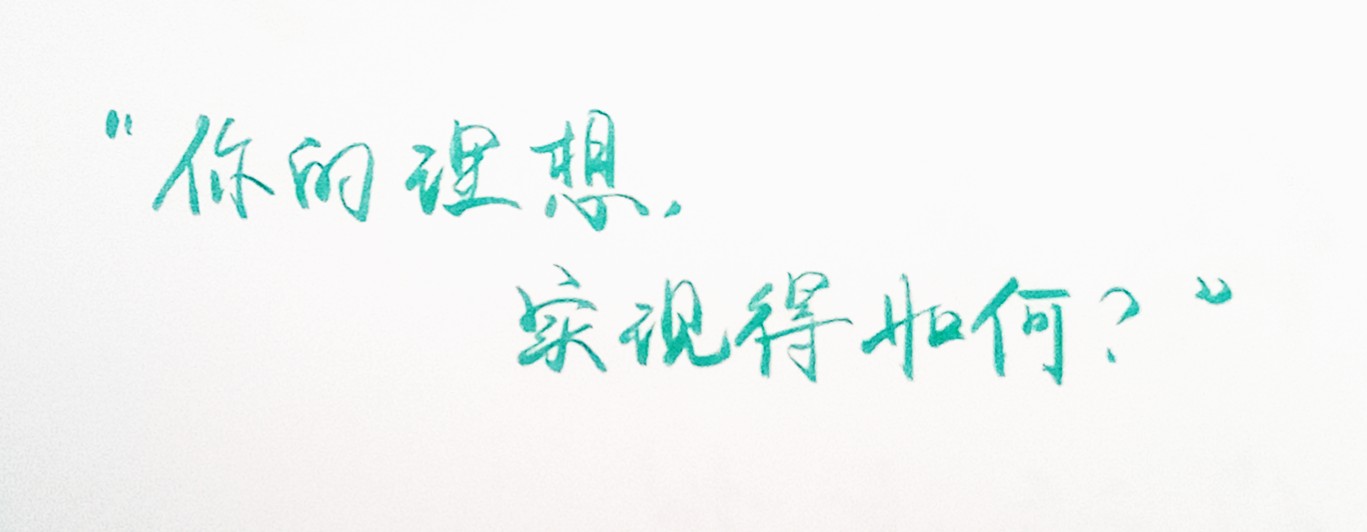 “你的理想,
实现得如何?”